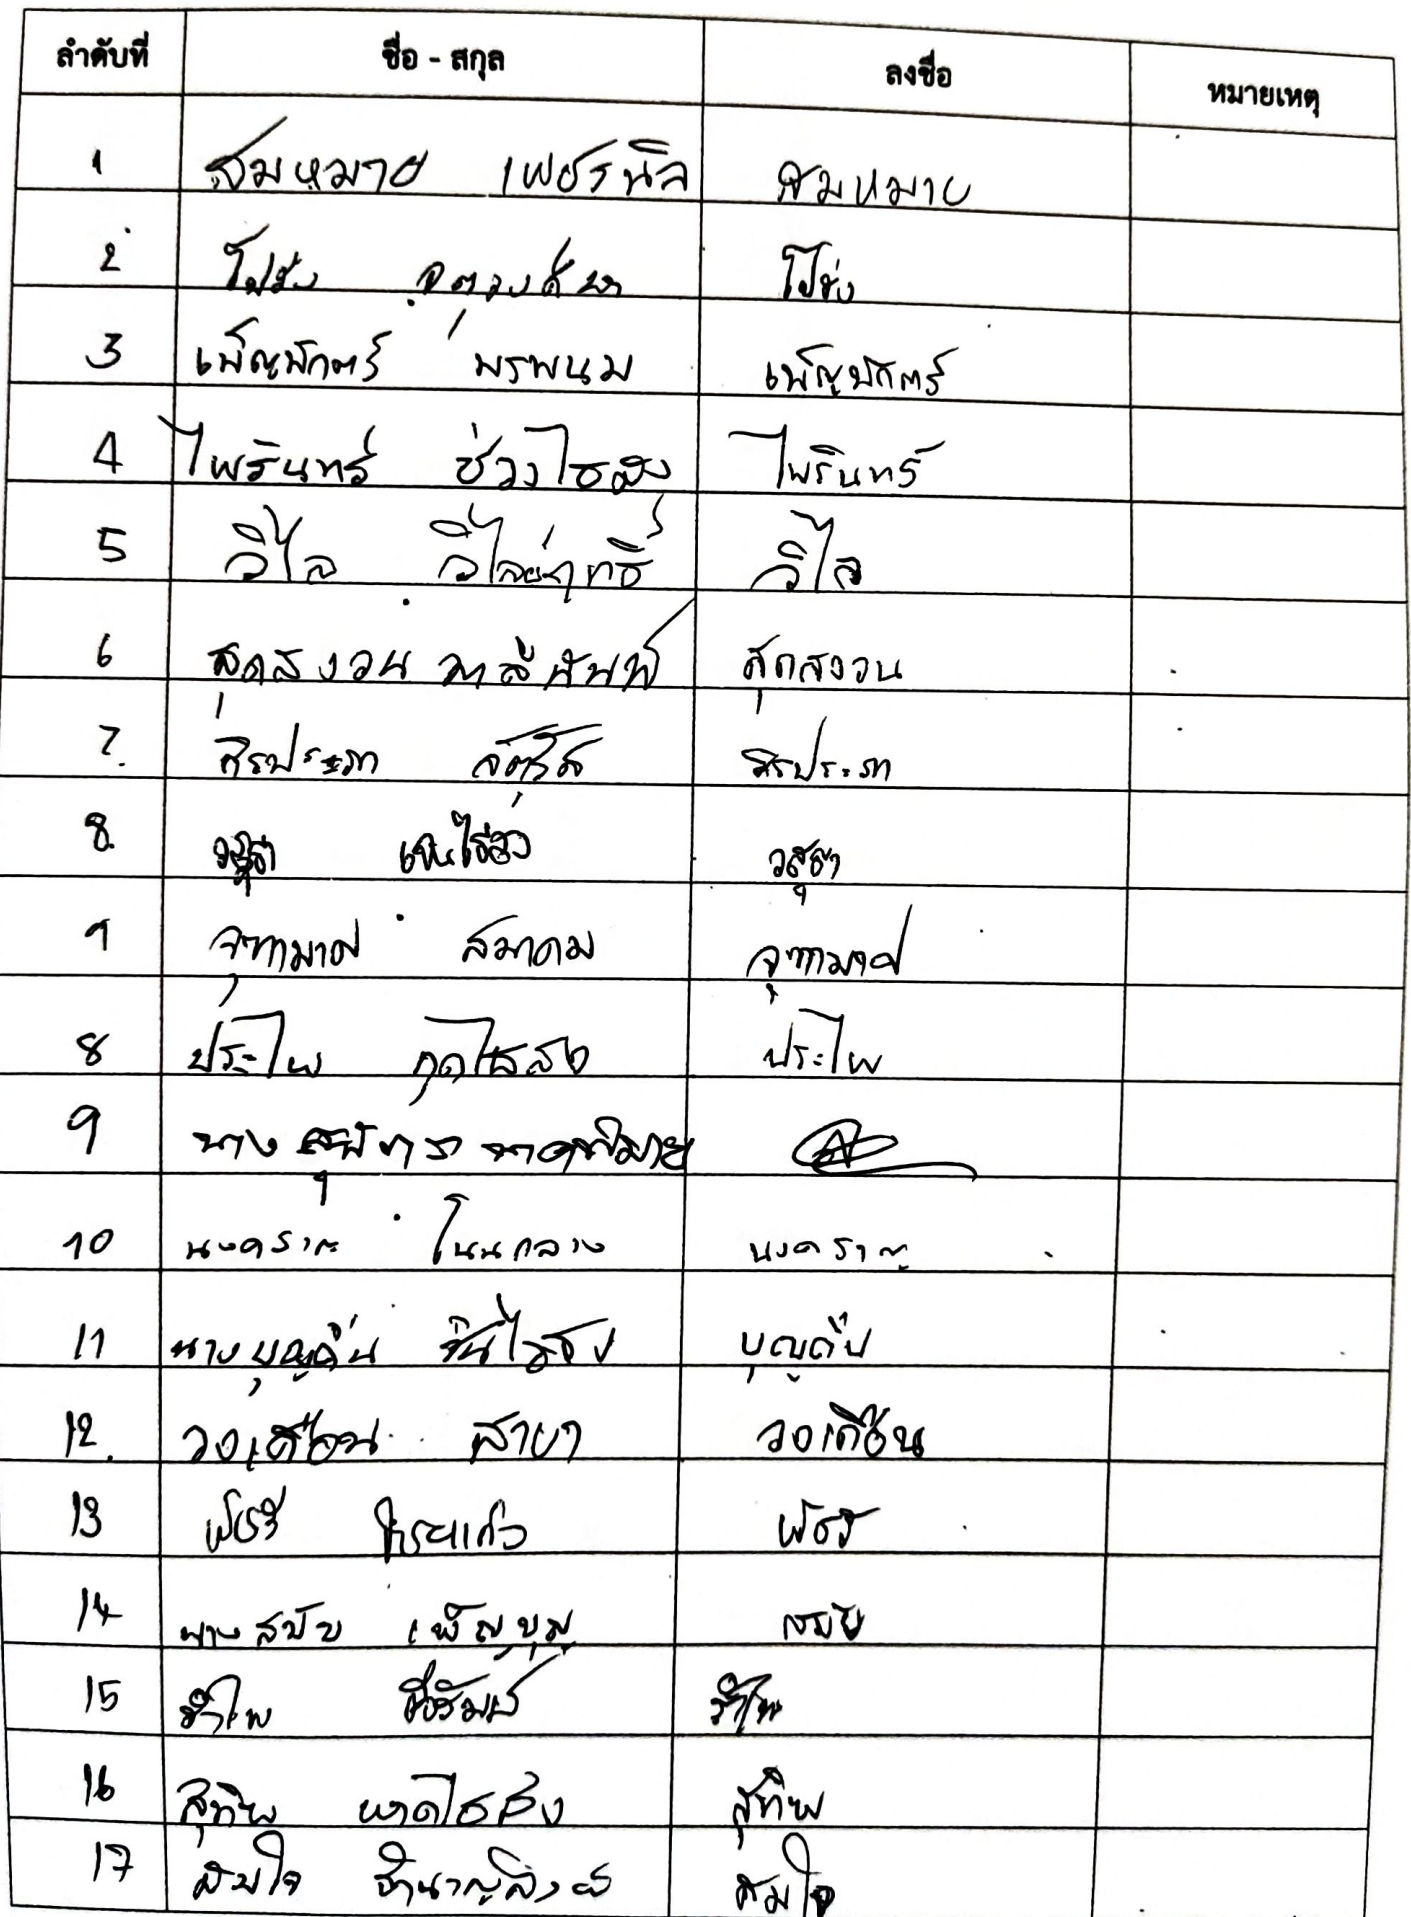 ลำดับที่ ชื่อ - สกุล ลงชื่อ หมายเหตุ
1 สมหมาย เพชรนิล สมหมาย
2 โปร่ง โปร่ง
3 เพ็ญพักตร์ พรพนม เพ็ญพักตร์
4 ไพรินทร์ ช่วงไธสง ไพรินทร์
5 วิไล วิไล
6 สุดสงวน สุดสงวน
7. ศิรประภา ศิรประภา
8. วสุธา วสุธา
9 จุฑามาศ สมาคม จุฑามาศ
8 ประไพ กุดไธสง ประไพ
9 นาง สุพัทรา
10 นงคราญ โนนกลาง นงคราญ
11 นางบุญถิ่น บุญถิ่น
12. วงเดือน สายา วงเดือน
13 พัชรี พัชรี
14 นางสมัย เพ็ญบุญ สมัย
15 รำไพ รำไพ
16 สุทิพ ไธสง สุทิพ
17 สมใจ ชำนาญสิงห์ สมใจ